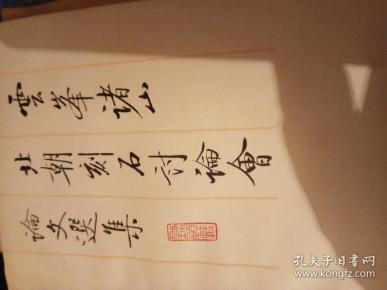 雲峯諸山
北朝刻石討論會
論文選集
孔夫子旧书网
www.kongfz.com